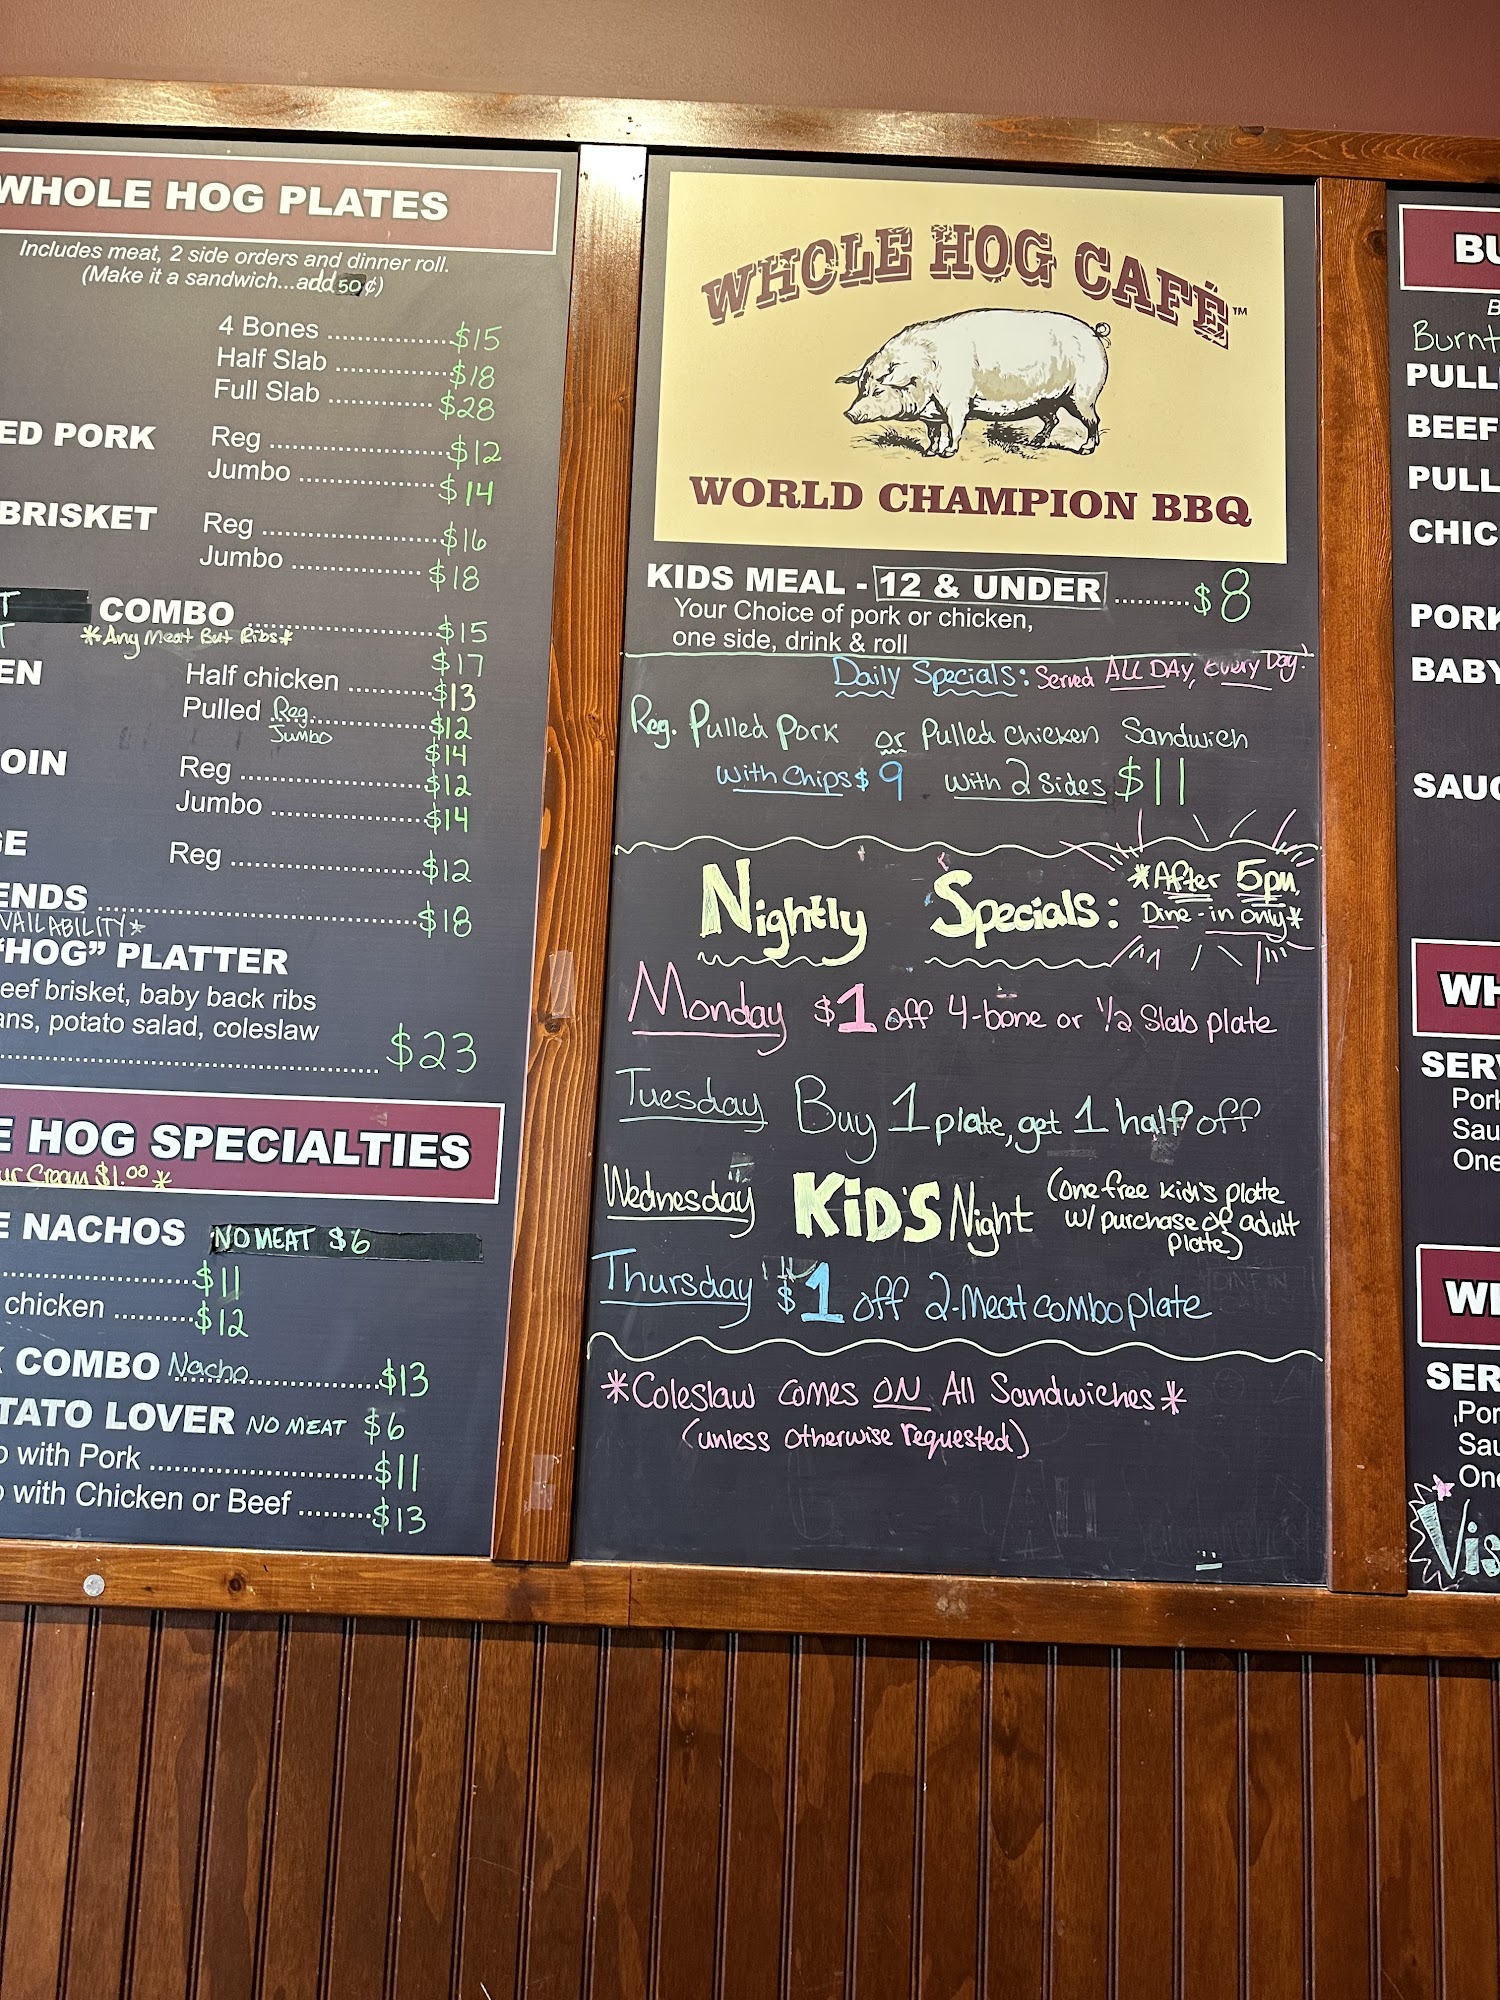 WHOLE HOG PLATES
Includes meat, 2 side orders and dinner roll.
(Make it a sandwich...add 50¢)
4 Bones ..................$15
Half Slab ..................$18
Full Slab ..................$28
ED PORK Reg ..................$12
Jumbo ..................$14
BRISKET Reg ..................$16
Jumbo ..................$18
COMBO ..................$15
*Any Meat But Ribs* $17
EN Half chicken ..................$13
Pulled Reg ..................$12
Jumbo $14
OIN Reg ..................$12
Jumbo ..................$14
GE Reg ..................$12
ENDS ..................$18
VAILABILITY*
"HOG" PLATTER
eef brisket, baby back ribs
ans, potato salad, coleslaw
..................$23
E HOG SPECIALTIES
ur Cream $1.00 *
E NACHOS NO MEAT $6
..................$11
chicken ..................$12
COMBO Nacho ..................$13
TATO LOVER NO MEAT $6
o with Pork ..................$11
o with Chicken or Beef ..................$13
WHOLE HOG CAFÉ™
WORLD CHAMPION BBQ
KIDS MEAL - 12 & UNDER ..........$8
Your Choice of pork or chicken,
one side, drink & roll
Daily Specials: Served ALL DAY, Every Day!
Reg. Pulled Pork or Pulled chicken Sandwich
with Chips $9 with 2 sides $11
Nightly Specials: *After 5pm,
Dine-in only*
Monday $1 off 4-bone or 1/2 Slab plate
Tuesday Buy 1 plate, get 1 half off
Wednesday KiD'S Night (one free kid's plate
w/ purchase of adult
plate)
Thursday $1 off 2-Meat combo plate
*Coleslaw comes ON All Sandwiches*
(unless otherwise requested)
BU
B
Burnt
PULL
BEEF
PULL
CHIC
PORK
BABY
SAUC
WH
SERV
Pork
Sau
One
WH
SER
Por
Sau
One
Vis